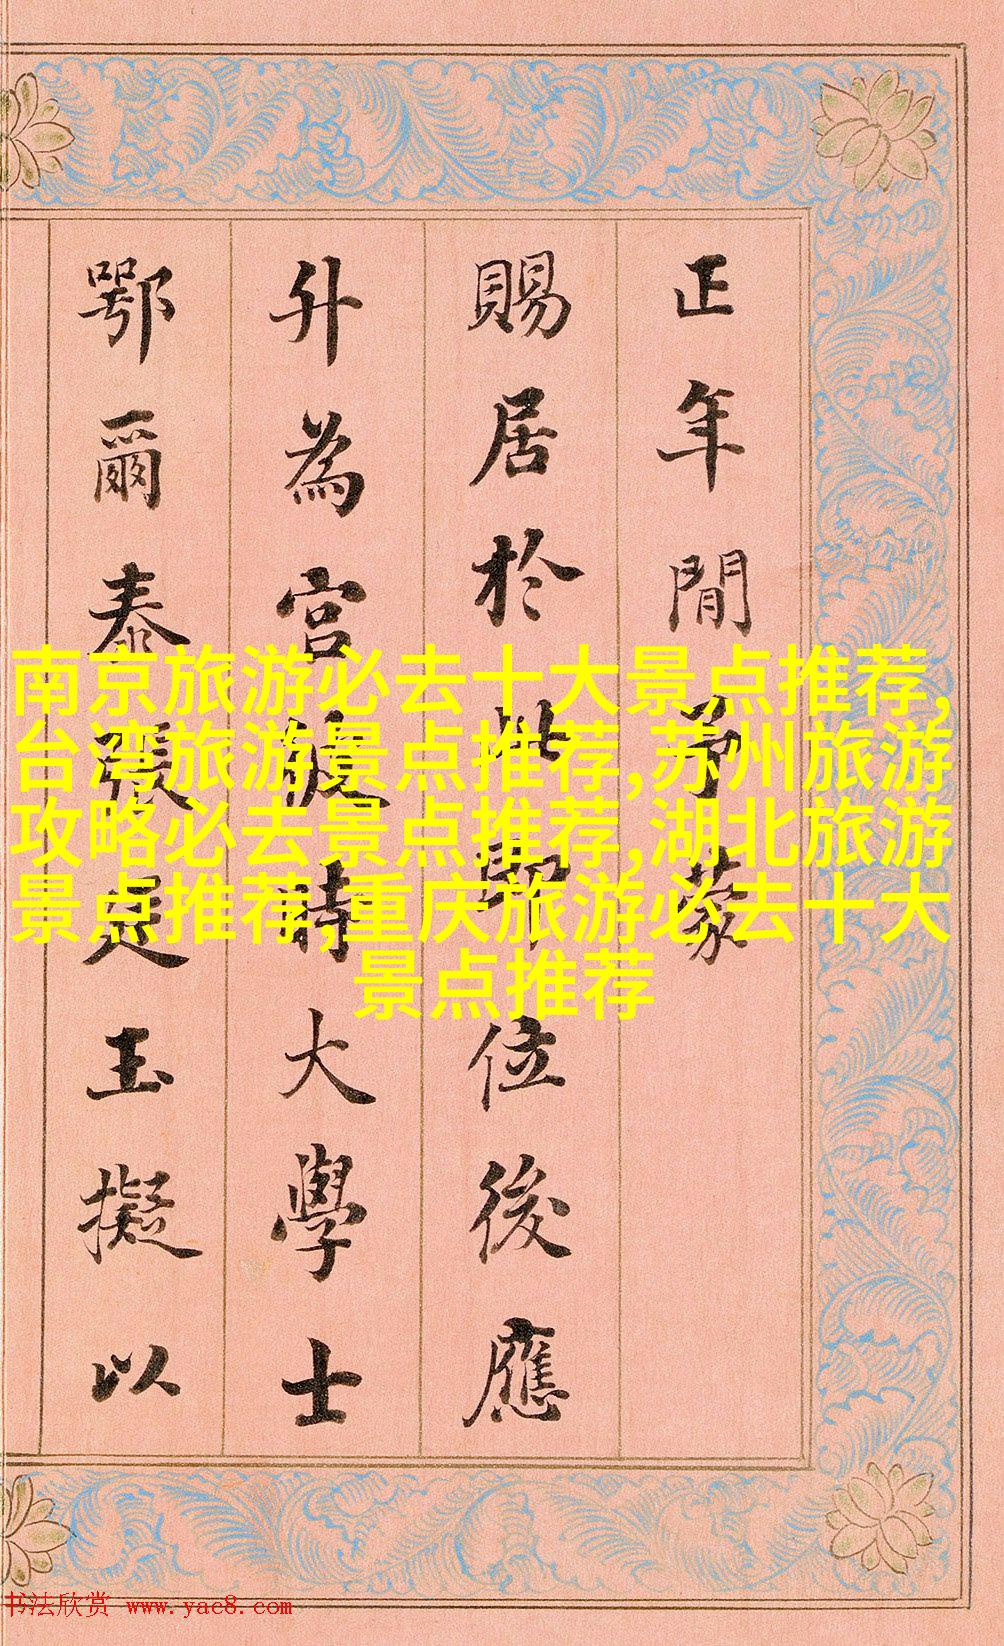 正年間予蒙
賜居於此即位後應
升為宮彼時大學士
鄂爾泰張廷玉擬以
南京旅游必去十大景点推荐,
台湾旅游景点推荐,苏州旅游
攻略必去景点推荐,湖北旅游
景点推荐,重庆旅游必去十大
景点推荐
书法欣赏 www.yac8.com